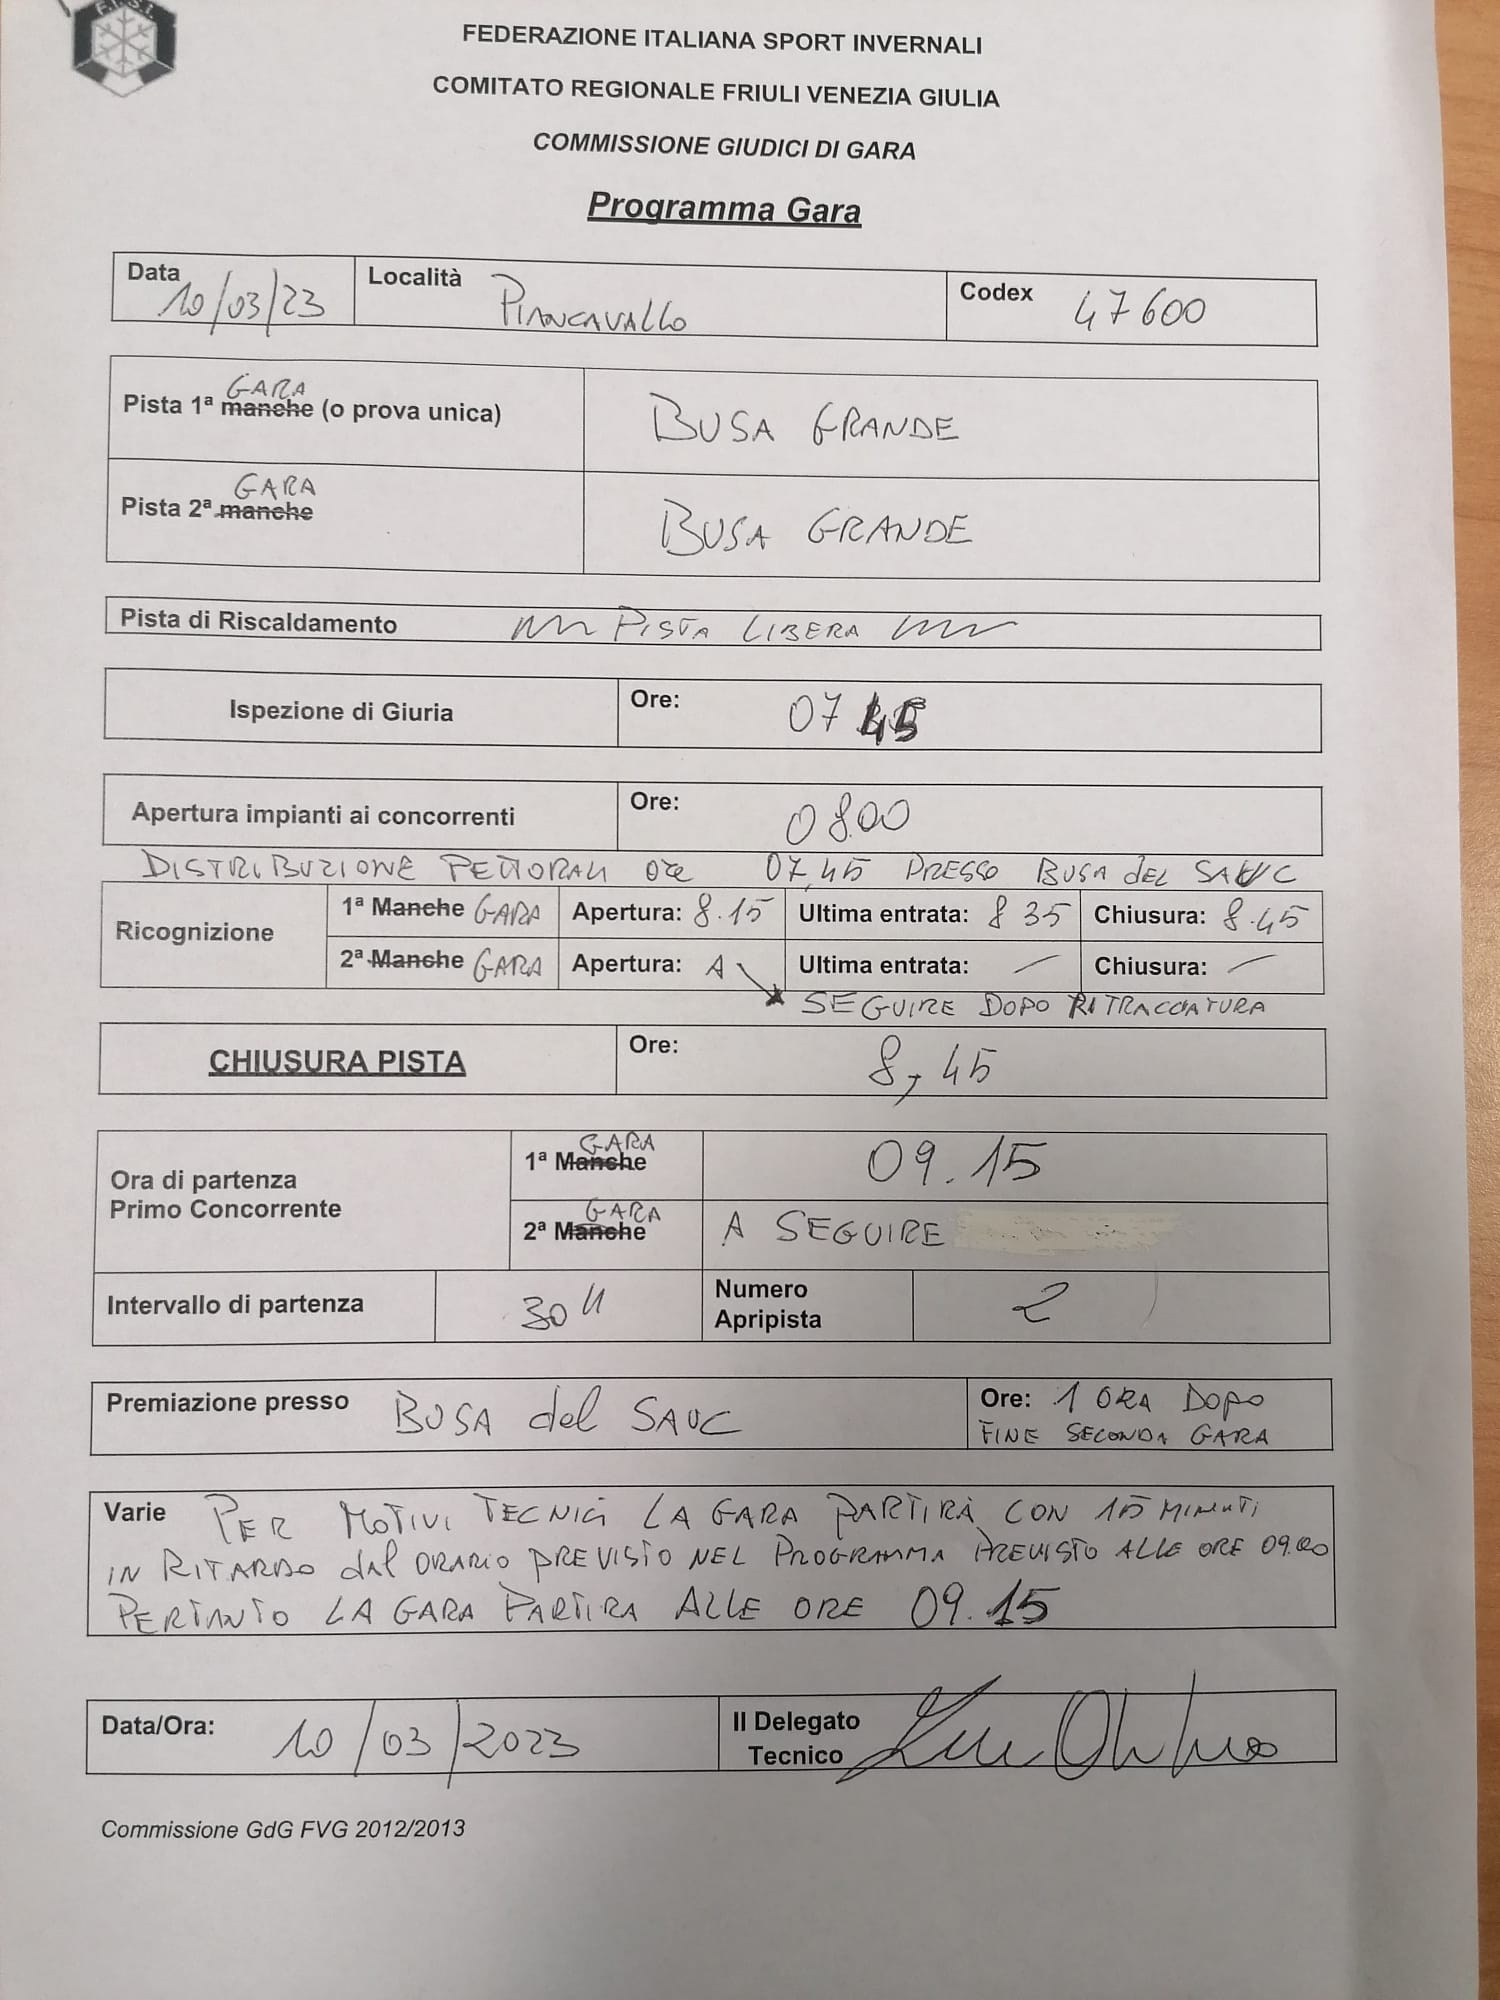 F.I.S.I.
FEDERAZIONE ITALIANA SPORT INVERNALI
COMITATO REGIONALE FRIULI VENEZIA GIULIA
COMMISSIONE GIUDICI DI GARA
Programma Gara
Data 10/03/23 Località PIANCAVALLO Codex 47600
GARA
Pista 1ª manche (o prova unica) BUSA GRANDE
GARA
Pista 2ª manche BUSA GRANDE
Pista di Riscaldamento PISTA LIBERA
Ispezione di Giuria Ore: 07 45
Apertura impianti ai concorrenti Ore: 08.00
DISTRIBUZIONE PETTORALI ore 07,45 PRESSO BUSA del SAUC
Ricognizione 1ª Manche GARA Apertura: 8.15 Ultima entrata: 8 35 Chiusura: 8.45
2ª Manche GARA Apertura: A Ultima entrata: — Chiusura: —
SEGUIRE DOPO RITRACCIATURA
CHIUSURA PISTA Ore: 8,45
GARA
Ora di partenza Primo Concorrente 1ª Manche 09.15
GARA
2ª Manche A SEGUIRE
Intervallo di partenza 30" Numero Apripista 2
Premiazione presso BUSA del SAUC Ore: 1 ORA DOPO
FINE SECONDA GARA
Varie PER MOTIVI TECNICI LA GARA PARTIRÀ CON 15 MINUTI
IN RITARDO dal ORARIO PREVISTO NEL PROGRAMMA PREVISTO ALLE ORE 09.00
PERTANTO LA GARA PARTIRA ALLE ORE 09.15
Data/Ora: 10/03/2023 Il Delegato
Tecnico
Commissione GdG FVG 2012/2013